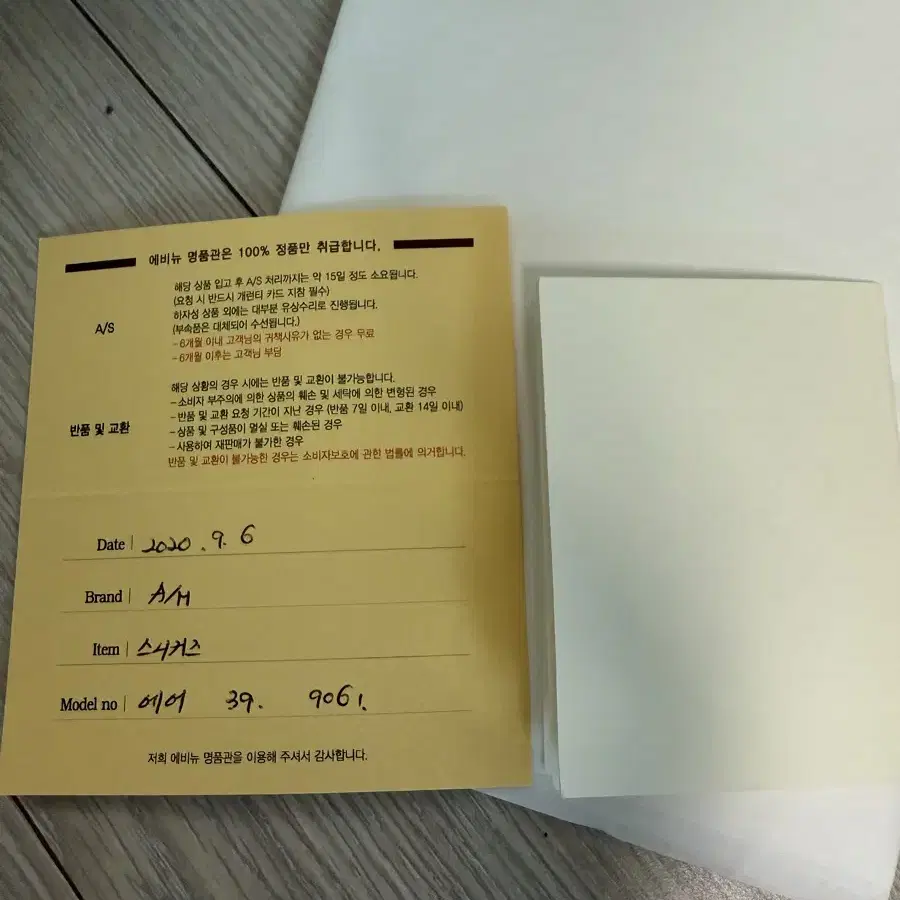 에비뉴 명품관은 100% 정품만 취급합니다.
A/S
해당 상품 입고 후 A/S 처리까지는 약 15일 정도 소요됩니다.
(요청 시 반드시 개런티 카드 지참 필수)
하자성 상품 외에는 대부분 유상수리로 진행됩니다.
(부속품은 대체되어 수선됩니다.)
- 6개월 이내 고객님의 귀책사유가 없는 경우 무료
- 6개월 이후는 고객님 부담
반품 및 교환
해당 상황의 경우 시에는 반품 및 교환이 불가능합니다.
- 소비자 부주의에 의한 상품의 훼손 및 세탁에 의한 변형된 경우
- 반품 및 교환 요청 기간이 지난 경우 (반품 7일 이내, 교환 14일 이내)
- 상품 및 구성품이 멸실 또는 훼손된 경우
- 사용하여 재판매가 불가한 경우
반품 및 교환이 불가능한 경우는 소비자보호에 관한 법률에 의거합니다.
Date | 2020. 9. 6
Brand | A/H
Item | 스니커즈
Model no | 에어 39. 9061.
저희 에비뉴 명품관을 이용해 주셔서 감사합니다.